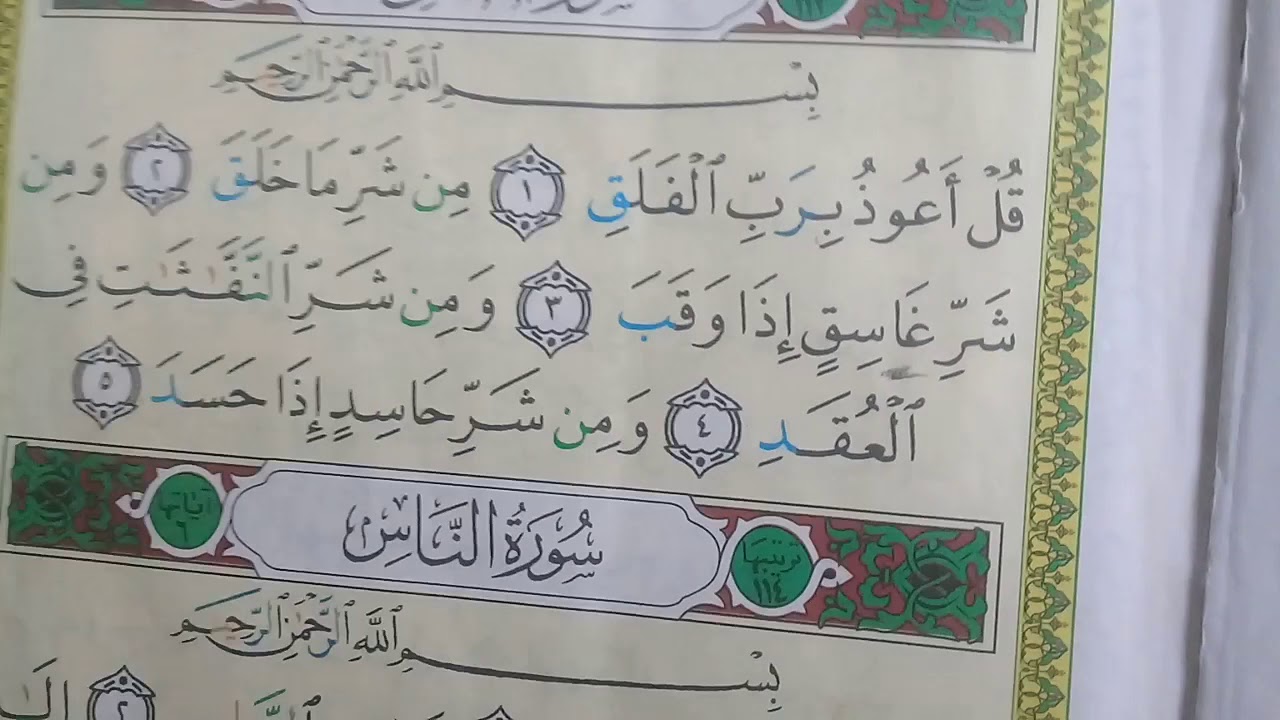 ١١٣
بِسْمِ ٱللَّهِ ٱلرَّحْمَٰنِ ٱلرَّحِيمِ
قُلْ أَعُوذُ بِرَبِّ ٱلْفَلَقِ ١ مِن شَرِّ مَا خَلَقَ ٢ وَمِن
شَرِّ غَاسِقٍ إِذَا وَقَبَ ٣ وَمِن شَرِّ ٱلنَّفَّٰثَٰتِ فِى
ٱلْعُقَدِ ٤ وَمِن شَرِّ حَاسِدٍ إِذَا حَسَدَ ٥
ترتيبها ١١٤ سُورَةُ النَّاسِ آياتها ٦
بِسْمِ ٱللَّهِ ٱلرَّحْمَٰنِ ٱلرَّحِيمِ
٢